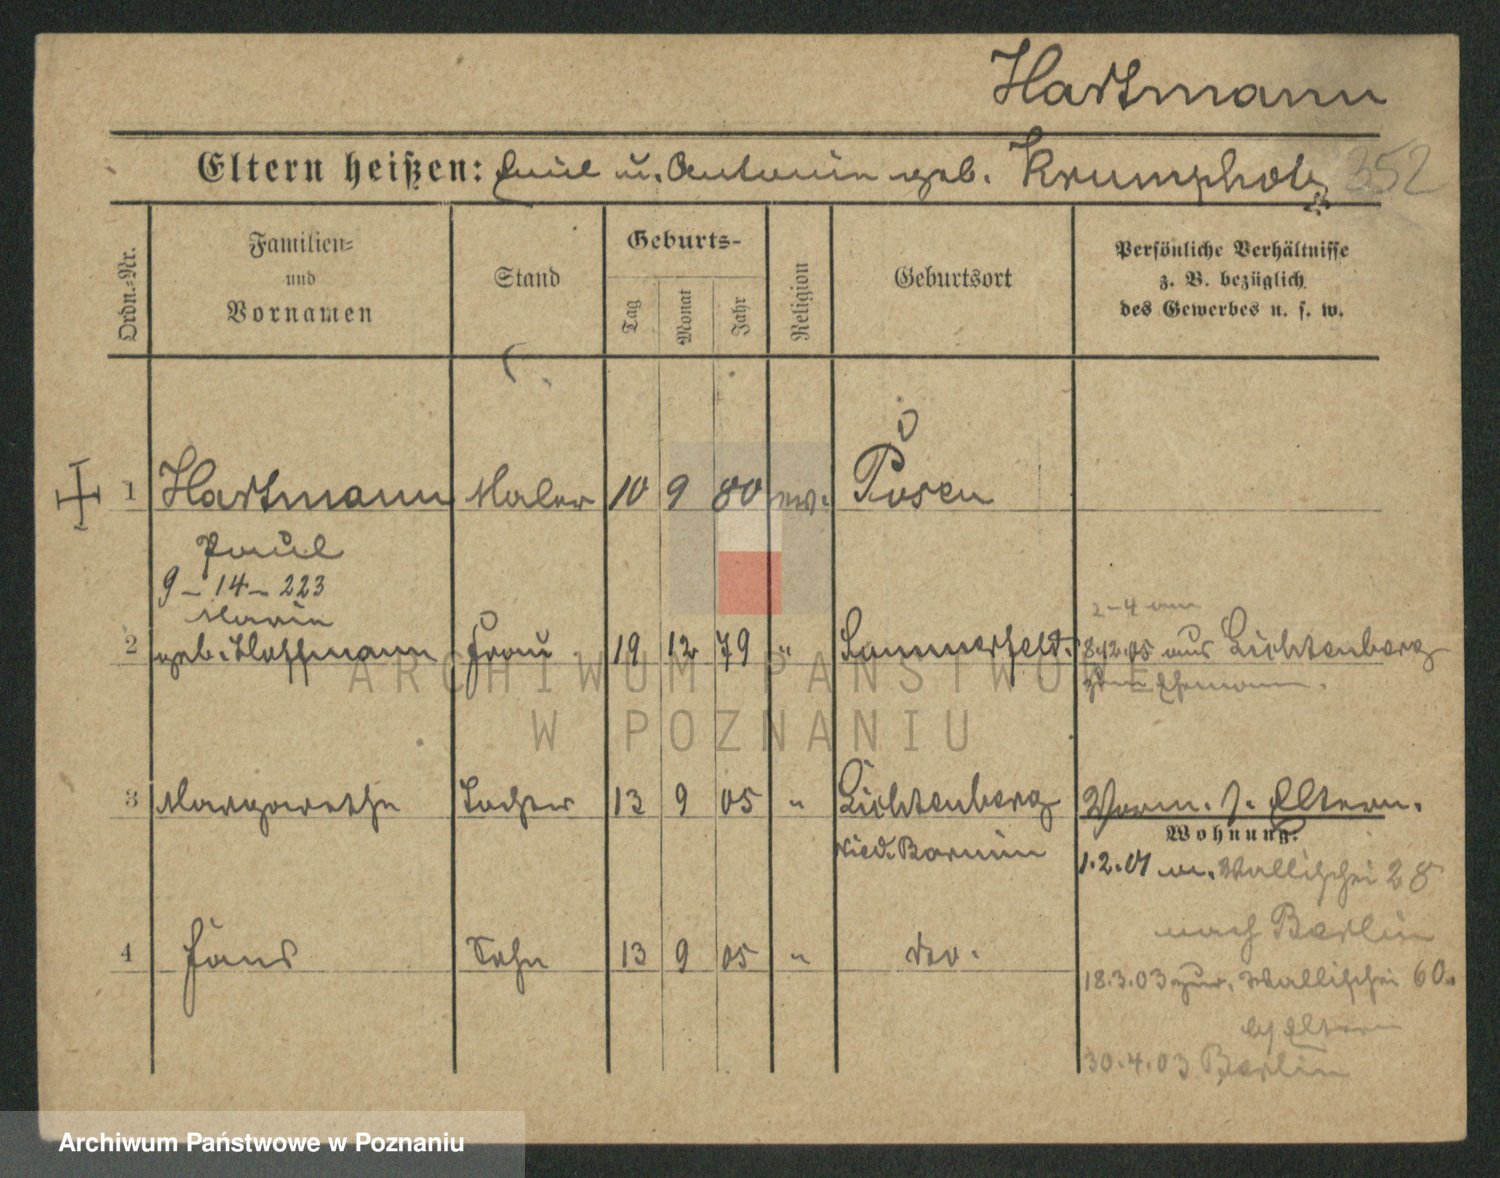 Hartmann
Eltern heißen: Emil u. Antonin geb. Krumpholz 352
Ordn.=Nr.
Familien=
und
Vornamen
Stand
Geburts-
Tag
Monat
Jahr
Religion
Geburtsort
Persönliche Verhältnisse
z. B. bezüglich
des Gewerbes u. s. w.
1 Hartmann Maler 10 9 80 ev. Posen
Paul
9 - 14 - 223
Marie
2 geb. Hoffmann Frau 19 12 79 " Sommerfeld.
2-4 am
8.12.05 aus Lichtenberg
zum Ehemann.
3 Margarethe Tochter 13 9 05 " Lichtenberg
Nied. Barnim
Vorm. s. Eltern.
Wohnung:
1.2.01 Wallischei 28
nach Berlin
4 Hans Sohn 13 9 05 " do.
18.3.03 zur. Wallischei 60.
Eltern
30.4.03 Berlin
ARCHIWUM PAŃSTWO E
W POZNANIU
Archiwum Państwowe w Poznaniu